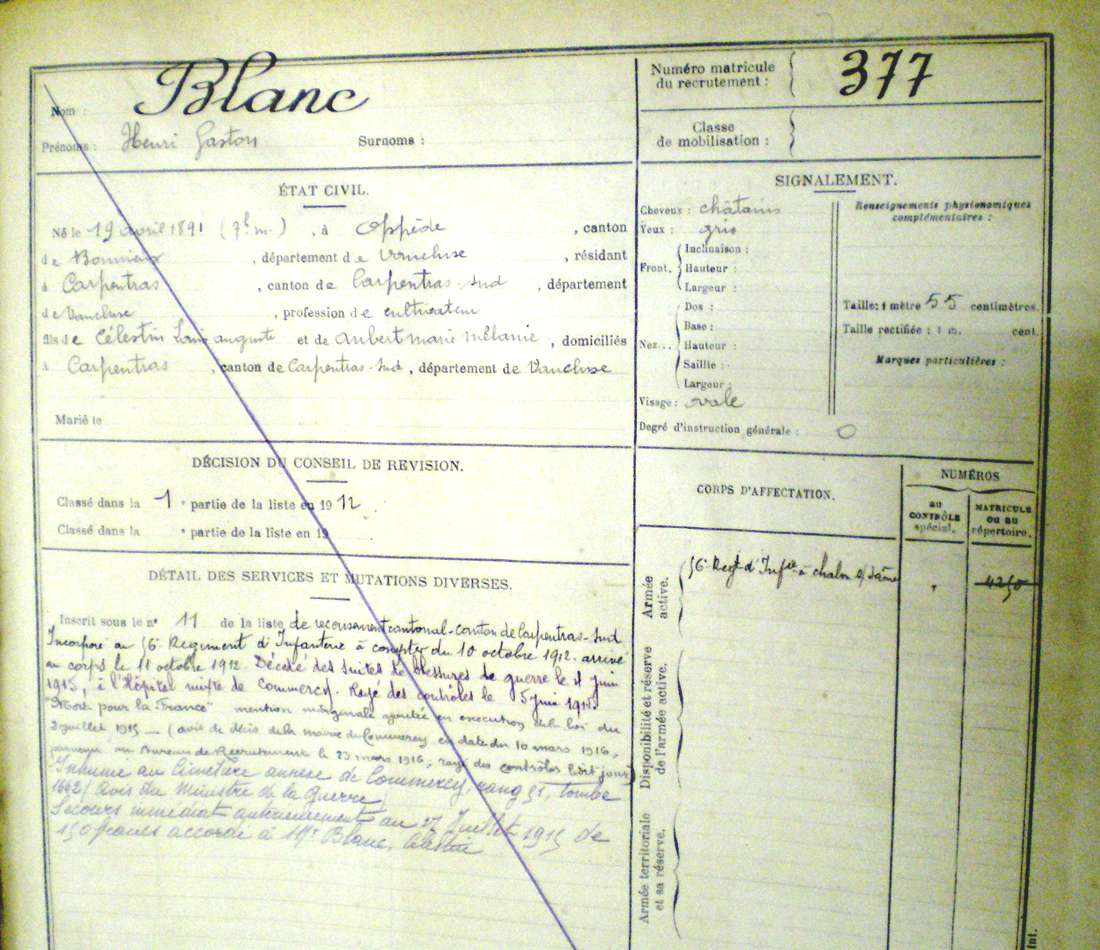 Nom : Blanc
Prénoms : Henri Gaston Surnoms :
Numéro matricule du recrutement : 377
Classe de mobilisation :
ÉTAT CIVIL.
Né le 19 avril 1891 , à Oppède , canton
de Bonnieux , département de Vaucluse , résidant
à Carpentras , canton de Carpentras-Sud , département
de Vaucluse , profession de cultivateur
fils de Célestin Louis auguste et de Aubert marie mélanie , domiciliés
à Carpentras , canton de Carpentras-Sud , département de Vaucluse
Marié le
SIGNALEMENT.
Cheveux : châtains
Yeux : gris
Front. Inclinaison :
Hauteur :
Largeur :
Nez... Dos :
Base :
Hauteur :
Saillie :
Largeur :
Visage : ovale
Renseignements physionomiques
complémentaires :
Taille : 1 mètre 55 centimètres.
Taille rectifiée : 1 m. cent.
Marques particulières :
Degré d'instruction générale : 0
DÉCISION DU CONSEIL DE REVISION.
Classé dans la 1 e partie de la liste en 1912
Classé dans la e partie de la liste en 19
DÉTAIL DES SERVICES ET MUTATIONS DIVERSES.
Inscrit sous le n° 11 de la liste de recensement cantonal - canton de Carpentras-Sud
Incorporé au 56e Régiment d'Infanterie à compter du 10 octobre 1912. arrivé
au corps le 11 octobre 1912. Décédé des suites de blessures de guerre le 4 juin
1915, à l'Hôpital mixte de Commercy. Rayé des contrôles le 5 juin 1915.
"Mort pour la France" mention marginale ajoutée en exécution de la loi du
2 juillet 1915 (avis de décès de la mairie de Commercy en date du 10 mars 1916,
parvenu au Bureau de Recrutement le 23 mars 1916, rayé des contrôles
Inhumé au Cimetière annexe de Commercy, rang 51, tombe
1692 (avis du Ministre de la Guerre)
Secours immédiat antérieurement au 27 Juillet 1915 de
150 francs accordé à Mr Blanc, Célestin
CORPS D'AFFECTATION.
NUMÉROS
AU CONTRÔLE spécial.
MATRICULE OU AU répertoire.
Armée active.
56e Regt d'Infie à chalon s/ Saône
" 4250
Disponibilité et réserve de l'armée active.
Armée territoriale et sa réserve.